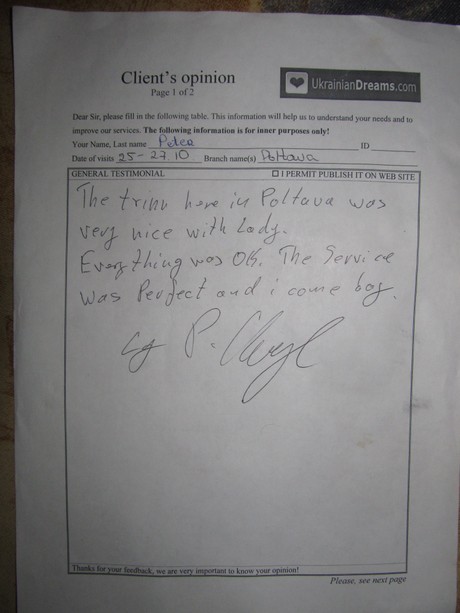 Client's opinion
Page 1 of 2
UkrainianDreams.com
Dear Sir, please fill in the following table. This information will help us to understand your needs and to
improve our services. The following information is for inner purposes only!
Your Name, Last name Peter ID
Date of visits 25-27.10 Branch name(s) Poltava
GENERAL TESTIMONIAL ☐ I PERMIT PUBLISH IT ON WEB SITE
The trinn here in Poltava was
very nice with Lady.
Everything was OK. The Service
was Perfect and i come bag.
P.
Thanks for your feedback, we are very important to know your opinion!
Please, see next page